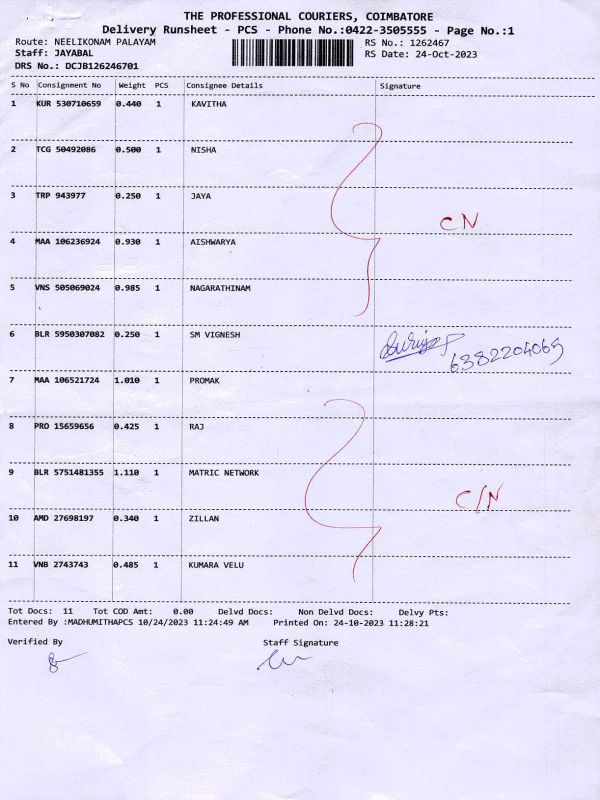 THE PROFESSIONAL COURIERS, COIMBATORE
Delivery Runsheet - PCS - Phone No.:0422-3505555 - Page No.:1
Route: NEELIKONAM PALAYAM RS No.: 1262467
Staff: JAYABAL RS Date: 24-Oct-2023
DRS No.: DCJB126246701
S No Consignment No Weight PCS Consignee Details Signature
1 KUR 530710659 0.440 1 KAVITHA
2 TCG 50492086 0.500 1 NISHA
3 TRP 943977 0.250 1 JAYA
CN
4 MAA 106236924 0.930 1 AISHWARYA
5 VNS 505069024 0.985 1 NAGARATHINAM
6 BLR 5950307082 0.250 1 SM VIGNESH
6382204069
7 MAA 106521724 1.010 1 PROMAK
8 PRO 15659656 0.425 1 RAJ
9 BLR 5751481355 1.110 1 MATRIC NETWORK
C/N
10 AMD 27698197 0.340 1 ZILLAN
11 VNB 2743743 0.485 1 KUMARA VELU
Tot Docs: 11 Tot COD Amt: 0.00 Delvd Docs: Non Delvd Docs: Delvy Pts:
Entered By :MADHUMITHAPCS 10/24/2023 11:24:49 AM Printed On: 24-10-2023 11:28:21
Verified By Staff Signature